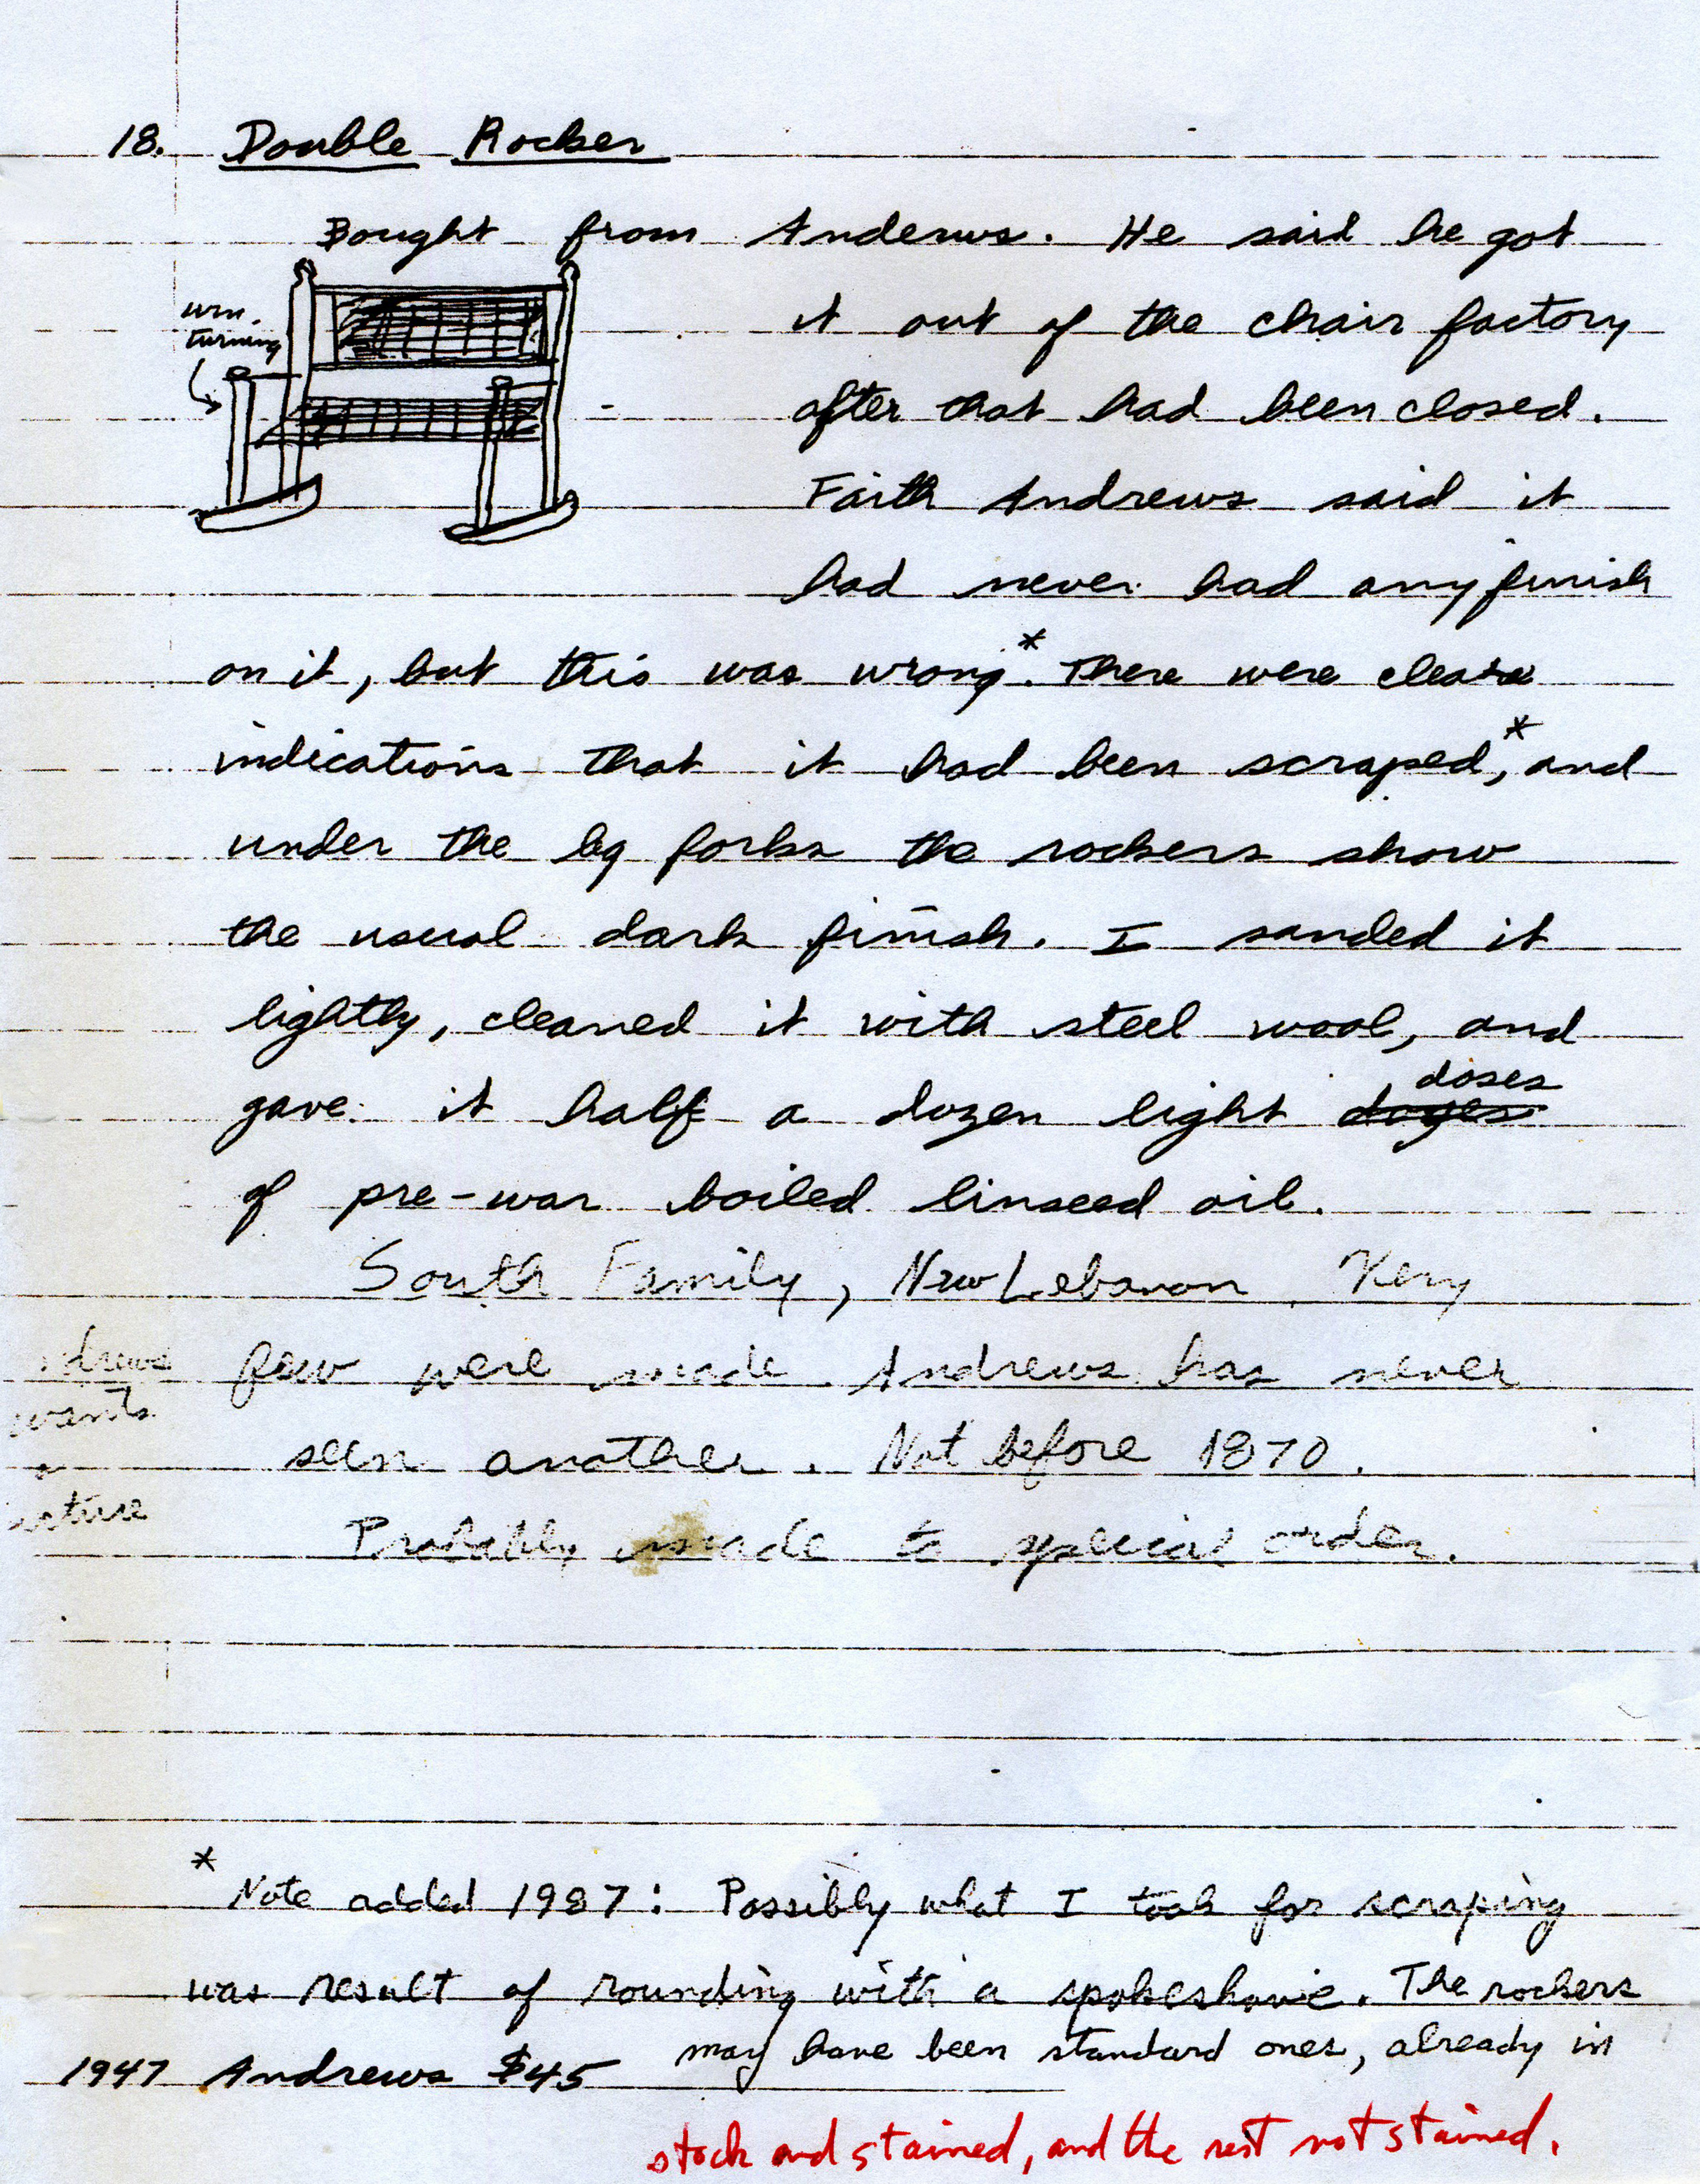 18. Double Rocker
Bought from Andrews. He said he got
urn
turning
it out of the chair factory
after that had been closed.
Faith Andrews said it
had never had any finish
on it, but this was wrong.* There were clear
indications that it had been scraped,* and
under the leg forks the rockers show
the usual dark finish. I sanded it
lightly, cleaned it with steel wool, and
doses
gave it half a dozen light
of pre-war boiled linseed oil.
South Family, New Lebanon. Very
few were made. Andrews has never
seen another. Not before 1870.
Probably made to special order.
drews
wants
a
icture
* Note added 1987: Possibly what I took for scraping
was result of rounding with a spokeshave. The rockers
may have been standard ones, already in
1947 Andrews $45
stock and stained, and the rest not stained.